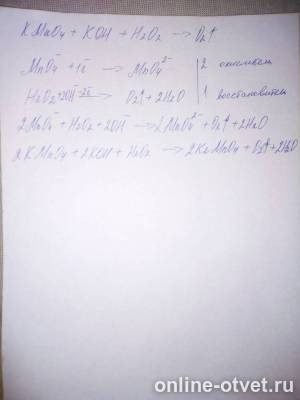 KMnO4 + KOH + H2O2 → O2↑
MnO4⁻ + 1e → MnO4²⁻ | 2 окислитель
H2O2 + 2OH⁻ - 2e → O2↑ + 2H2O | 1 восстановитель
2MnO4⁻ + H2O2 + 2OH⁻ → 2MnO4²⁻ + O2↑ + 2H2O
2KMnO4 + 2KOH + H2O2 → 2K2MnO4 + O2↑ + 2H2O
online-otvet.ru